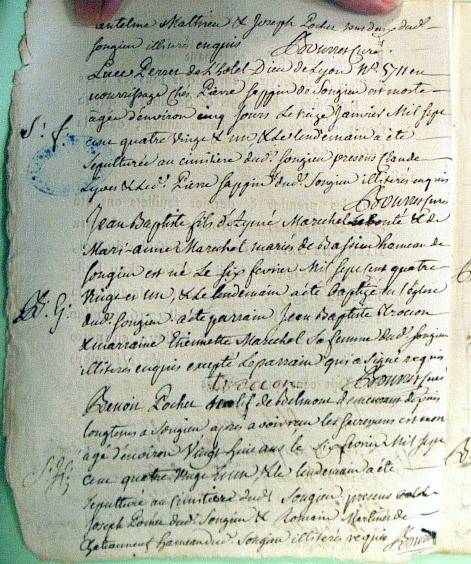 antelme Mathieu & Joseph Pocher tous deux dud.
Songieu illiterés enquis Bouvret curé
Luce Perret de l'hotel Dieu de Lyon N°. 5711 en
nourrissage chez Pierre Jappin de Songieu est morte
agée d'environ cinq jours Le treize Janvier Mil sept
S. f. cent quatre vingt & un & le lendemain a été
sepulturée au cimitiere dud. Songieu presens Claude
& led. Pierre Jappin dud. Songieu illiterés enquis
Bouvret curé
Jean Baptiste fils d'Aymé Marechel & de
Mari-anne Marechel mariés de Bassieu hameau de
Songieu est né Le six fevrier Mil sept cent quatre
B. G. vingt et un, & Le lendemain a été Baptizé en l'Eglise
dud. Songieu a été parrain Jean Baptiste
& marraine Etiennette Marechel sa femme dud. Songieu
illiterés enquis excepté Le parrain qui a signé requis
Bouvret curé
Benoit Pocher de Belmont demeurant depuis
longtems a Songieu apres avoir reçu les sacremens est mort
agé d'environ vingt huit ans le six fevrier Mil sept
cent quatre vingt & un & le lendemain a été
sepulturé au cimitiere dud. Songieu, presens
Joseph dud. Songieu & Romain Martinet de
Chateauneuf hameau dud. Songieu illiterés requis Bouvret